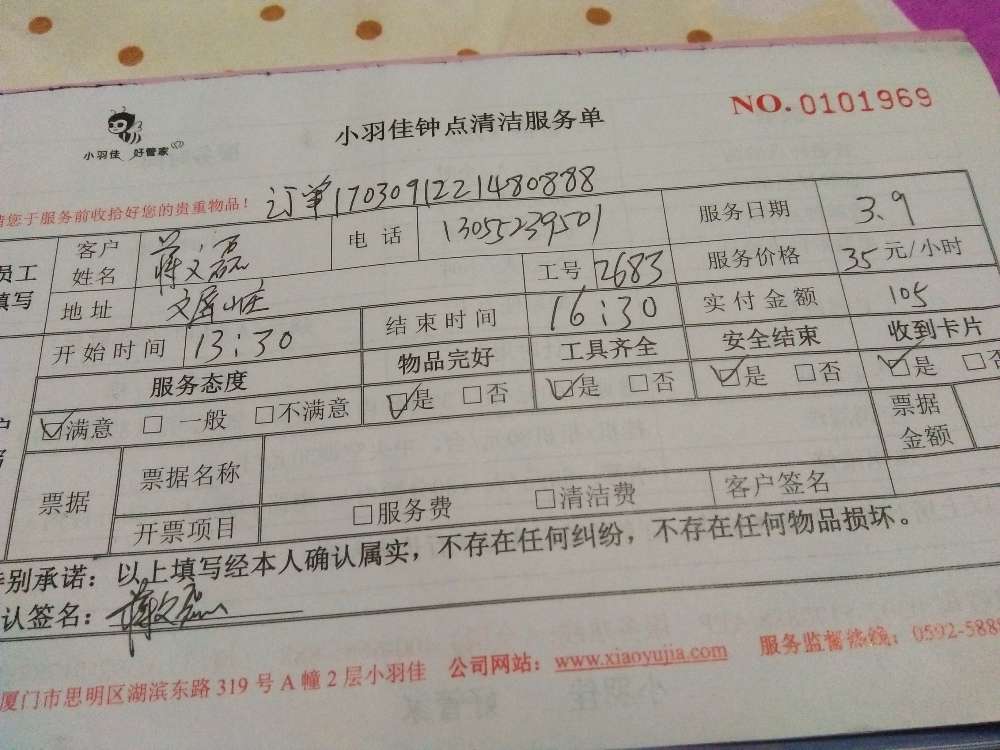 小羽佳 好管家
小羽佳钟点清洁服务单
NO. 0101969
请您于服务前收拾好您的贵重物品！ 订单17030912214480888
员工填写 客户姓名 蒋文磊 电话 13055239501 服务日期 3.9
地址 工号 2683 服务价格 35元/小时
开始时间 13:30 结束时间 16:30 实付金额 105
服务态度 物品完好 工具齐全 安全结束 收到卡片
☑满意 □一般 □不满意 ☑是 □否 ☑是 □否 ☑是 □否 ☑是 □否
票据 票据名称 票据金额
开票项目 □服务费 □清洁费 客户签名
特别承诺：以上填写经本人确认属实，不存在任何纠纷，不存在任何物品损坏。
认签名：蒋文磊
厦门市思明区湖滨东路319号A幢2层小羽佳 公司网站：www.xiaoyujia.com 服务监督热线：0592-5889